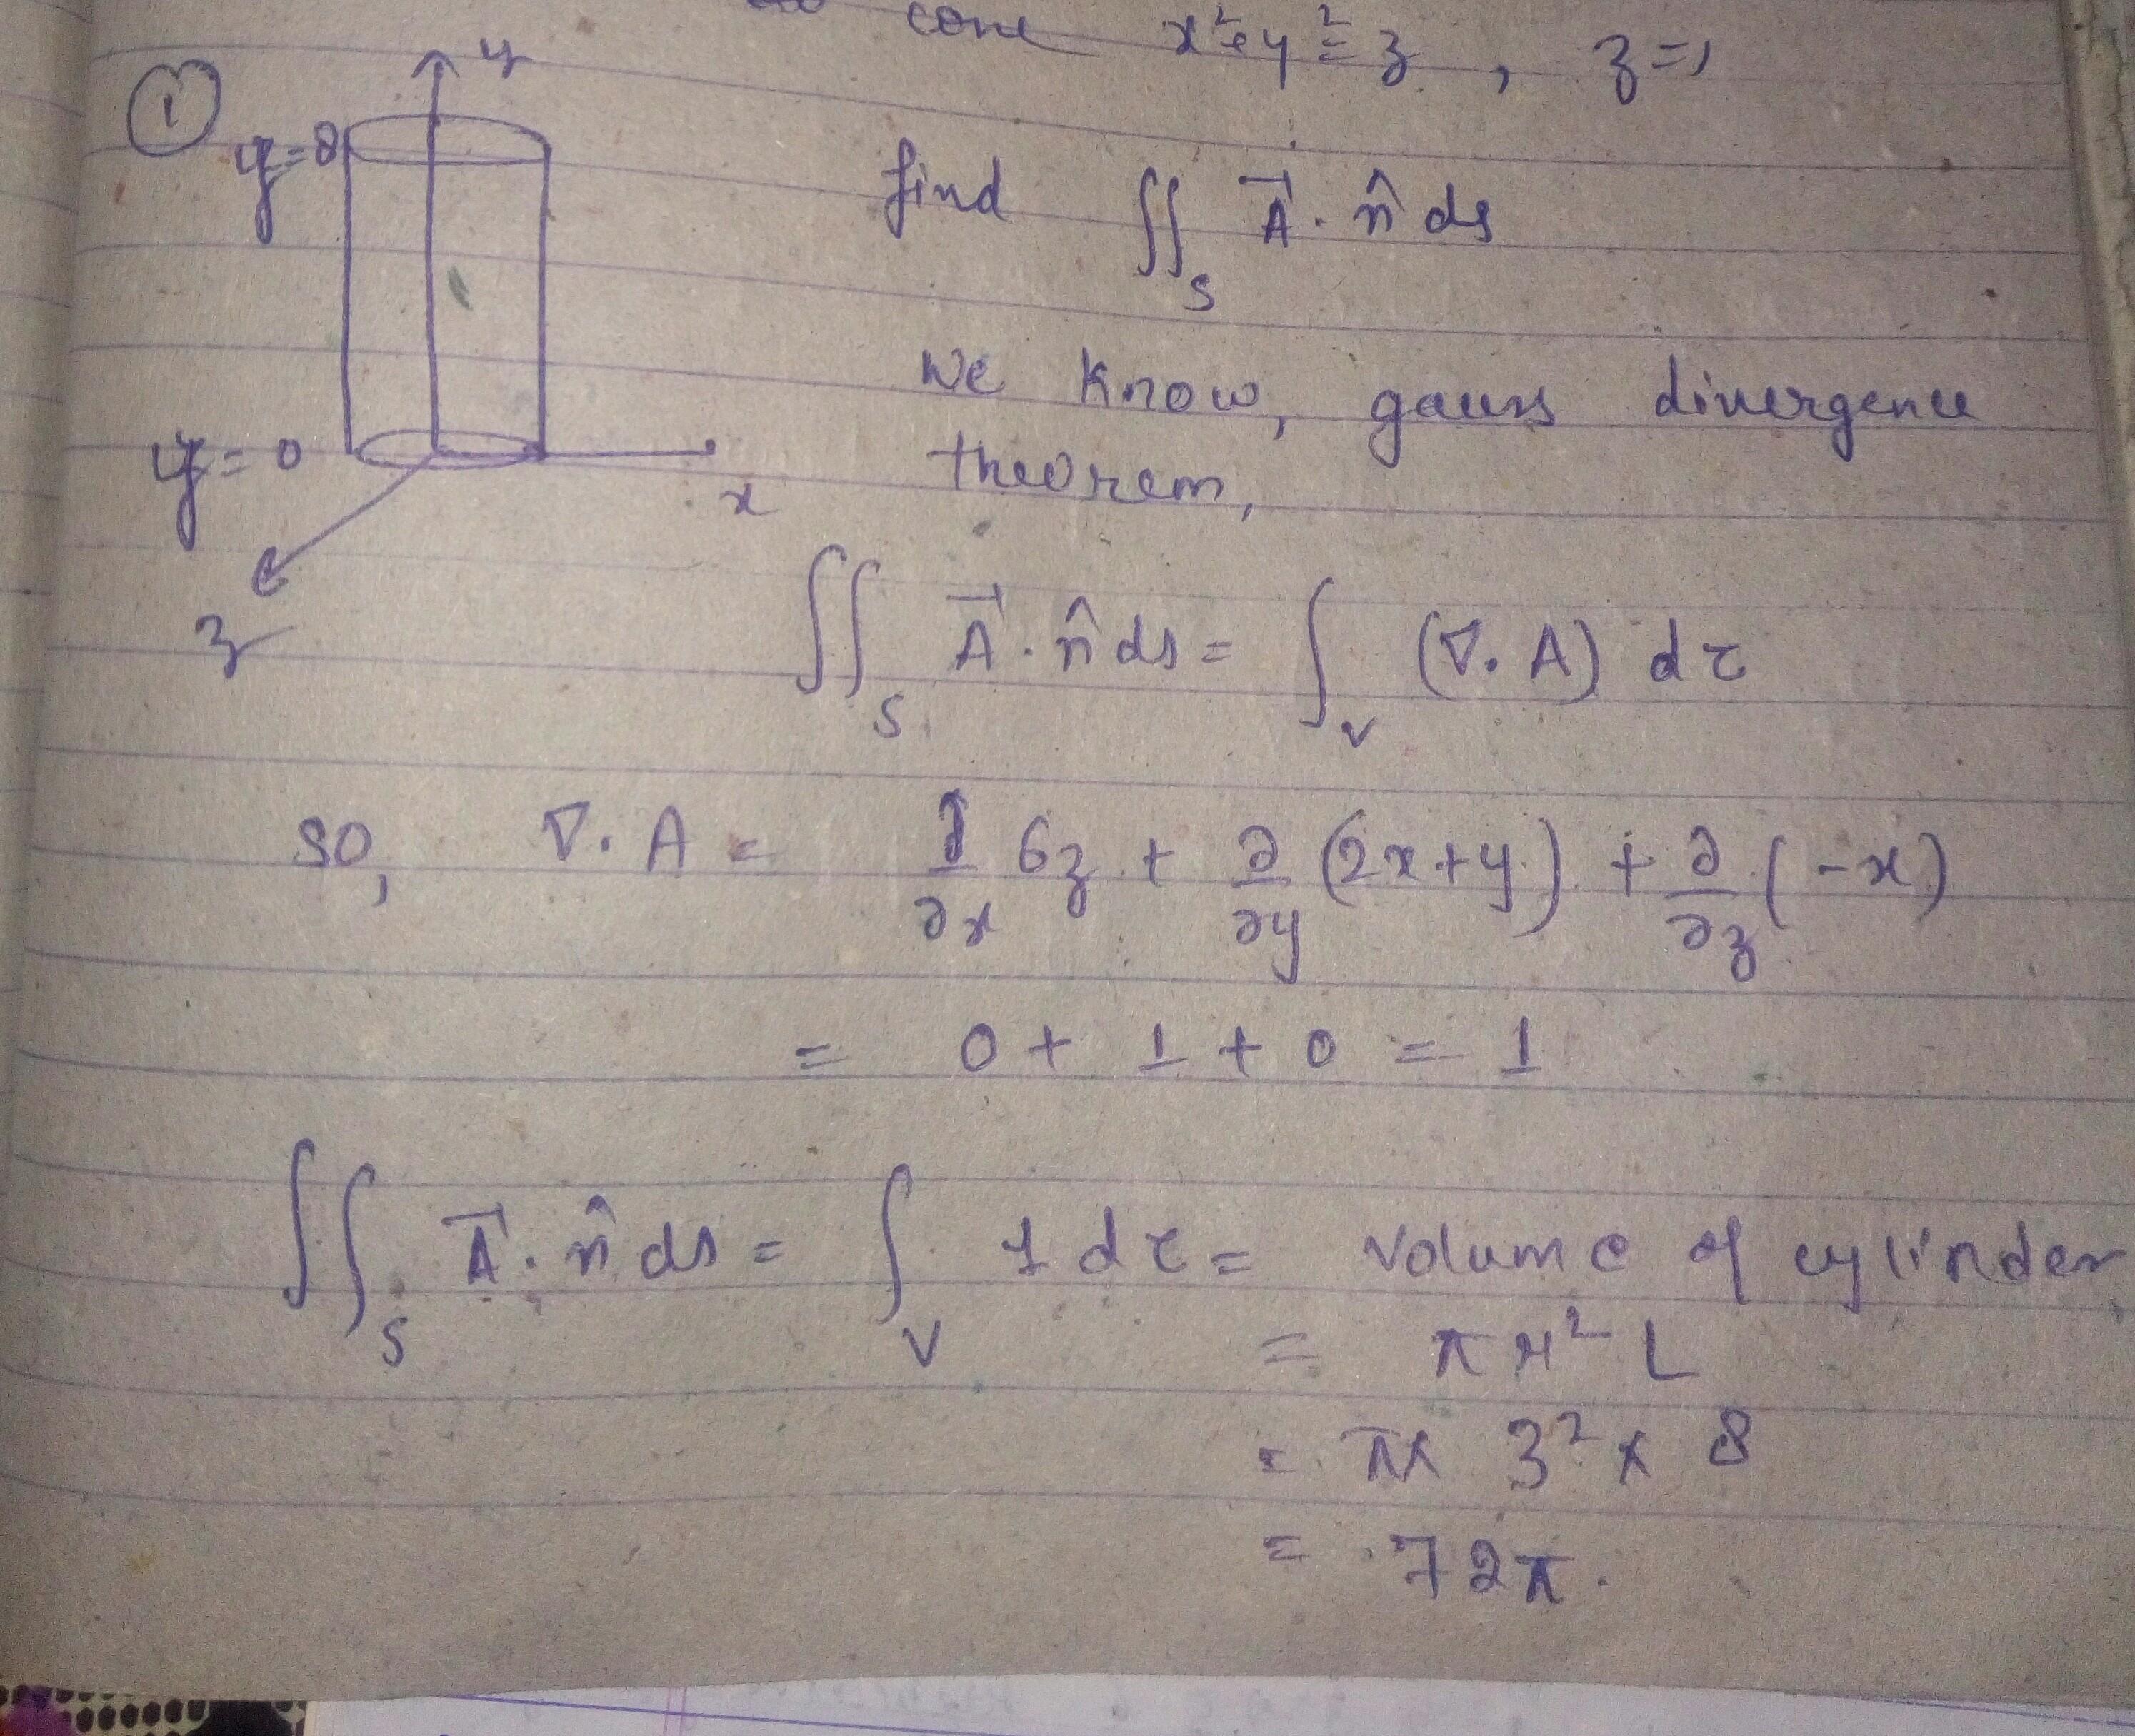 cone x²+y²=z, z=1
①
y
y=8
y=0
x
z
find ∬_S A⃗ . n̂ ds
We know, gauss divergence
theorem,
∬_S A⃗ . n̂ ds = ∫_V (∇. A) dτ
so, ∇. A = ∂/∂x 6z + ∂/∂y (2x+y) + ∂/∂z (-x)
= 0 + 1 + 0 = 1
∬_S A⃗ . n̂ ds = ∫_V 1 dτ = Volume of cylinder
= π r² L
= π x 3² x 8
= 72π.